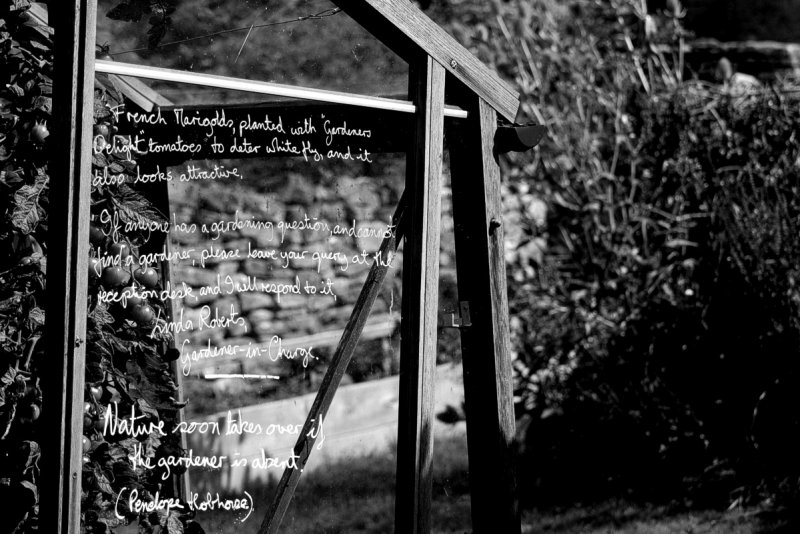 French Marigolds, planted with "Gardeners
Delight" tomatoes to deter whitefly, and it
also looks attractive.
"If anyone has a gardening question, and cannot
find a gardener, please leave your query at the
reception desk, and I will respond to it,
Linda Roberts,
Gardener-in-Charge.
Nature soon takes over if
the gardener is absent.
(Penelope Hobhouse)